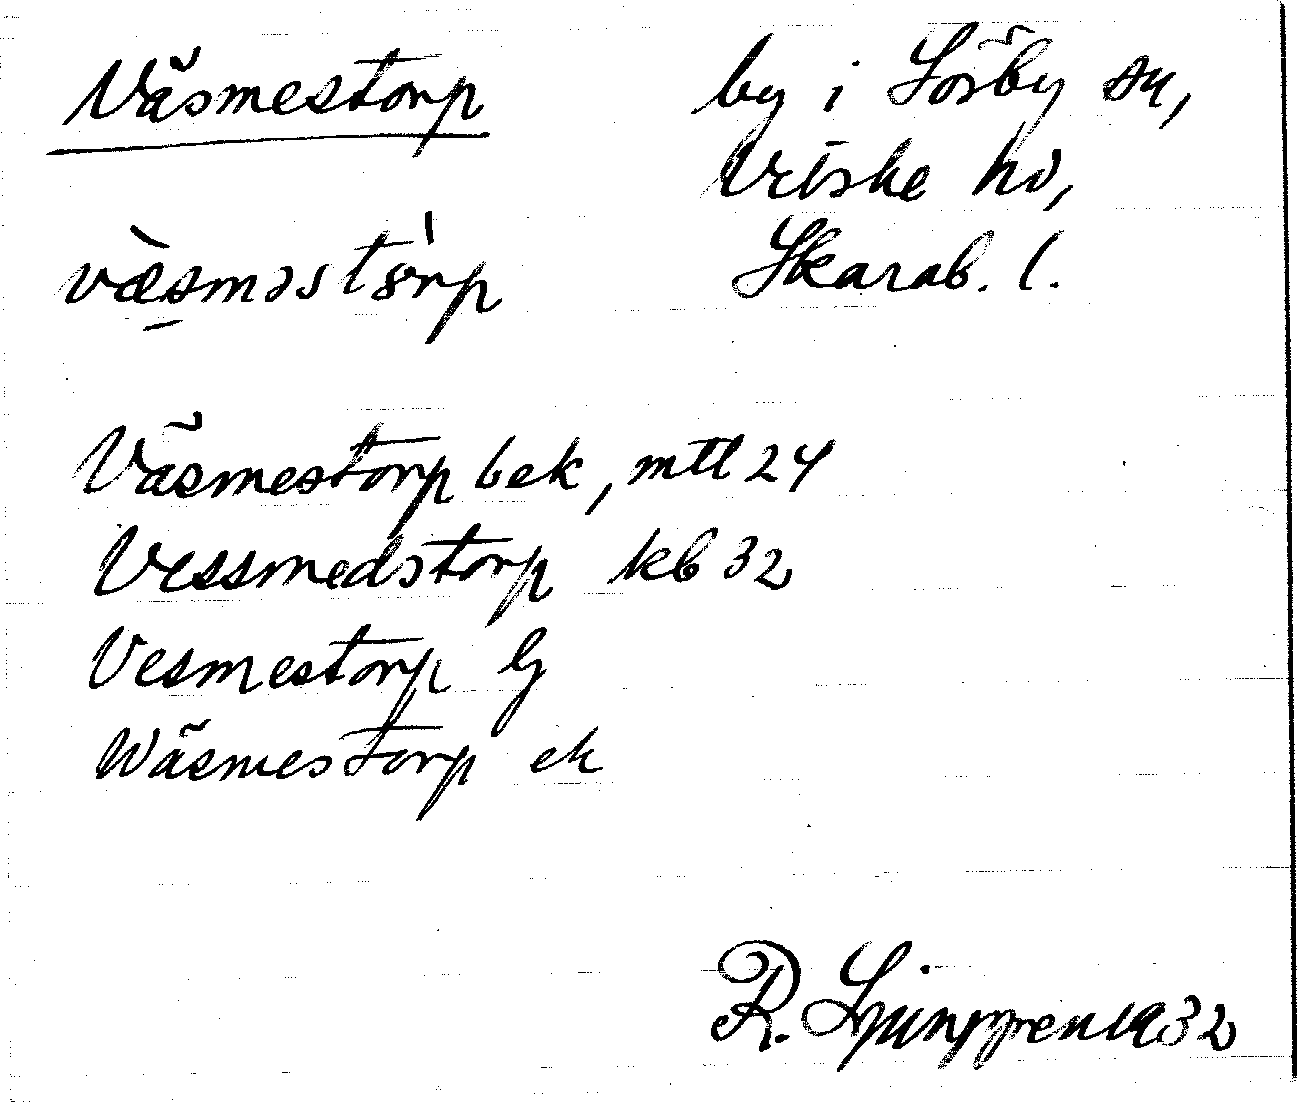 Väsmestorp
by i Sörby sn,
Vriske hd,
Skarab. l.
væ̀sməstórp
Väsmestorp bek, mtl 24
Vessmedstorp kb 32
Vesmestorp G
Wäsmestorp ek
R. Ljunggren 1932